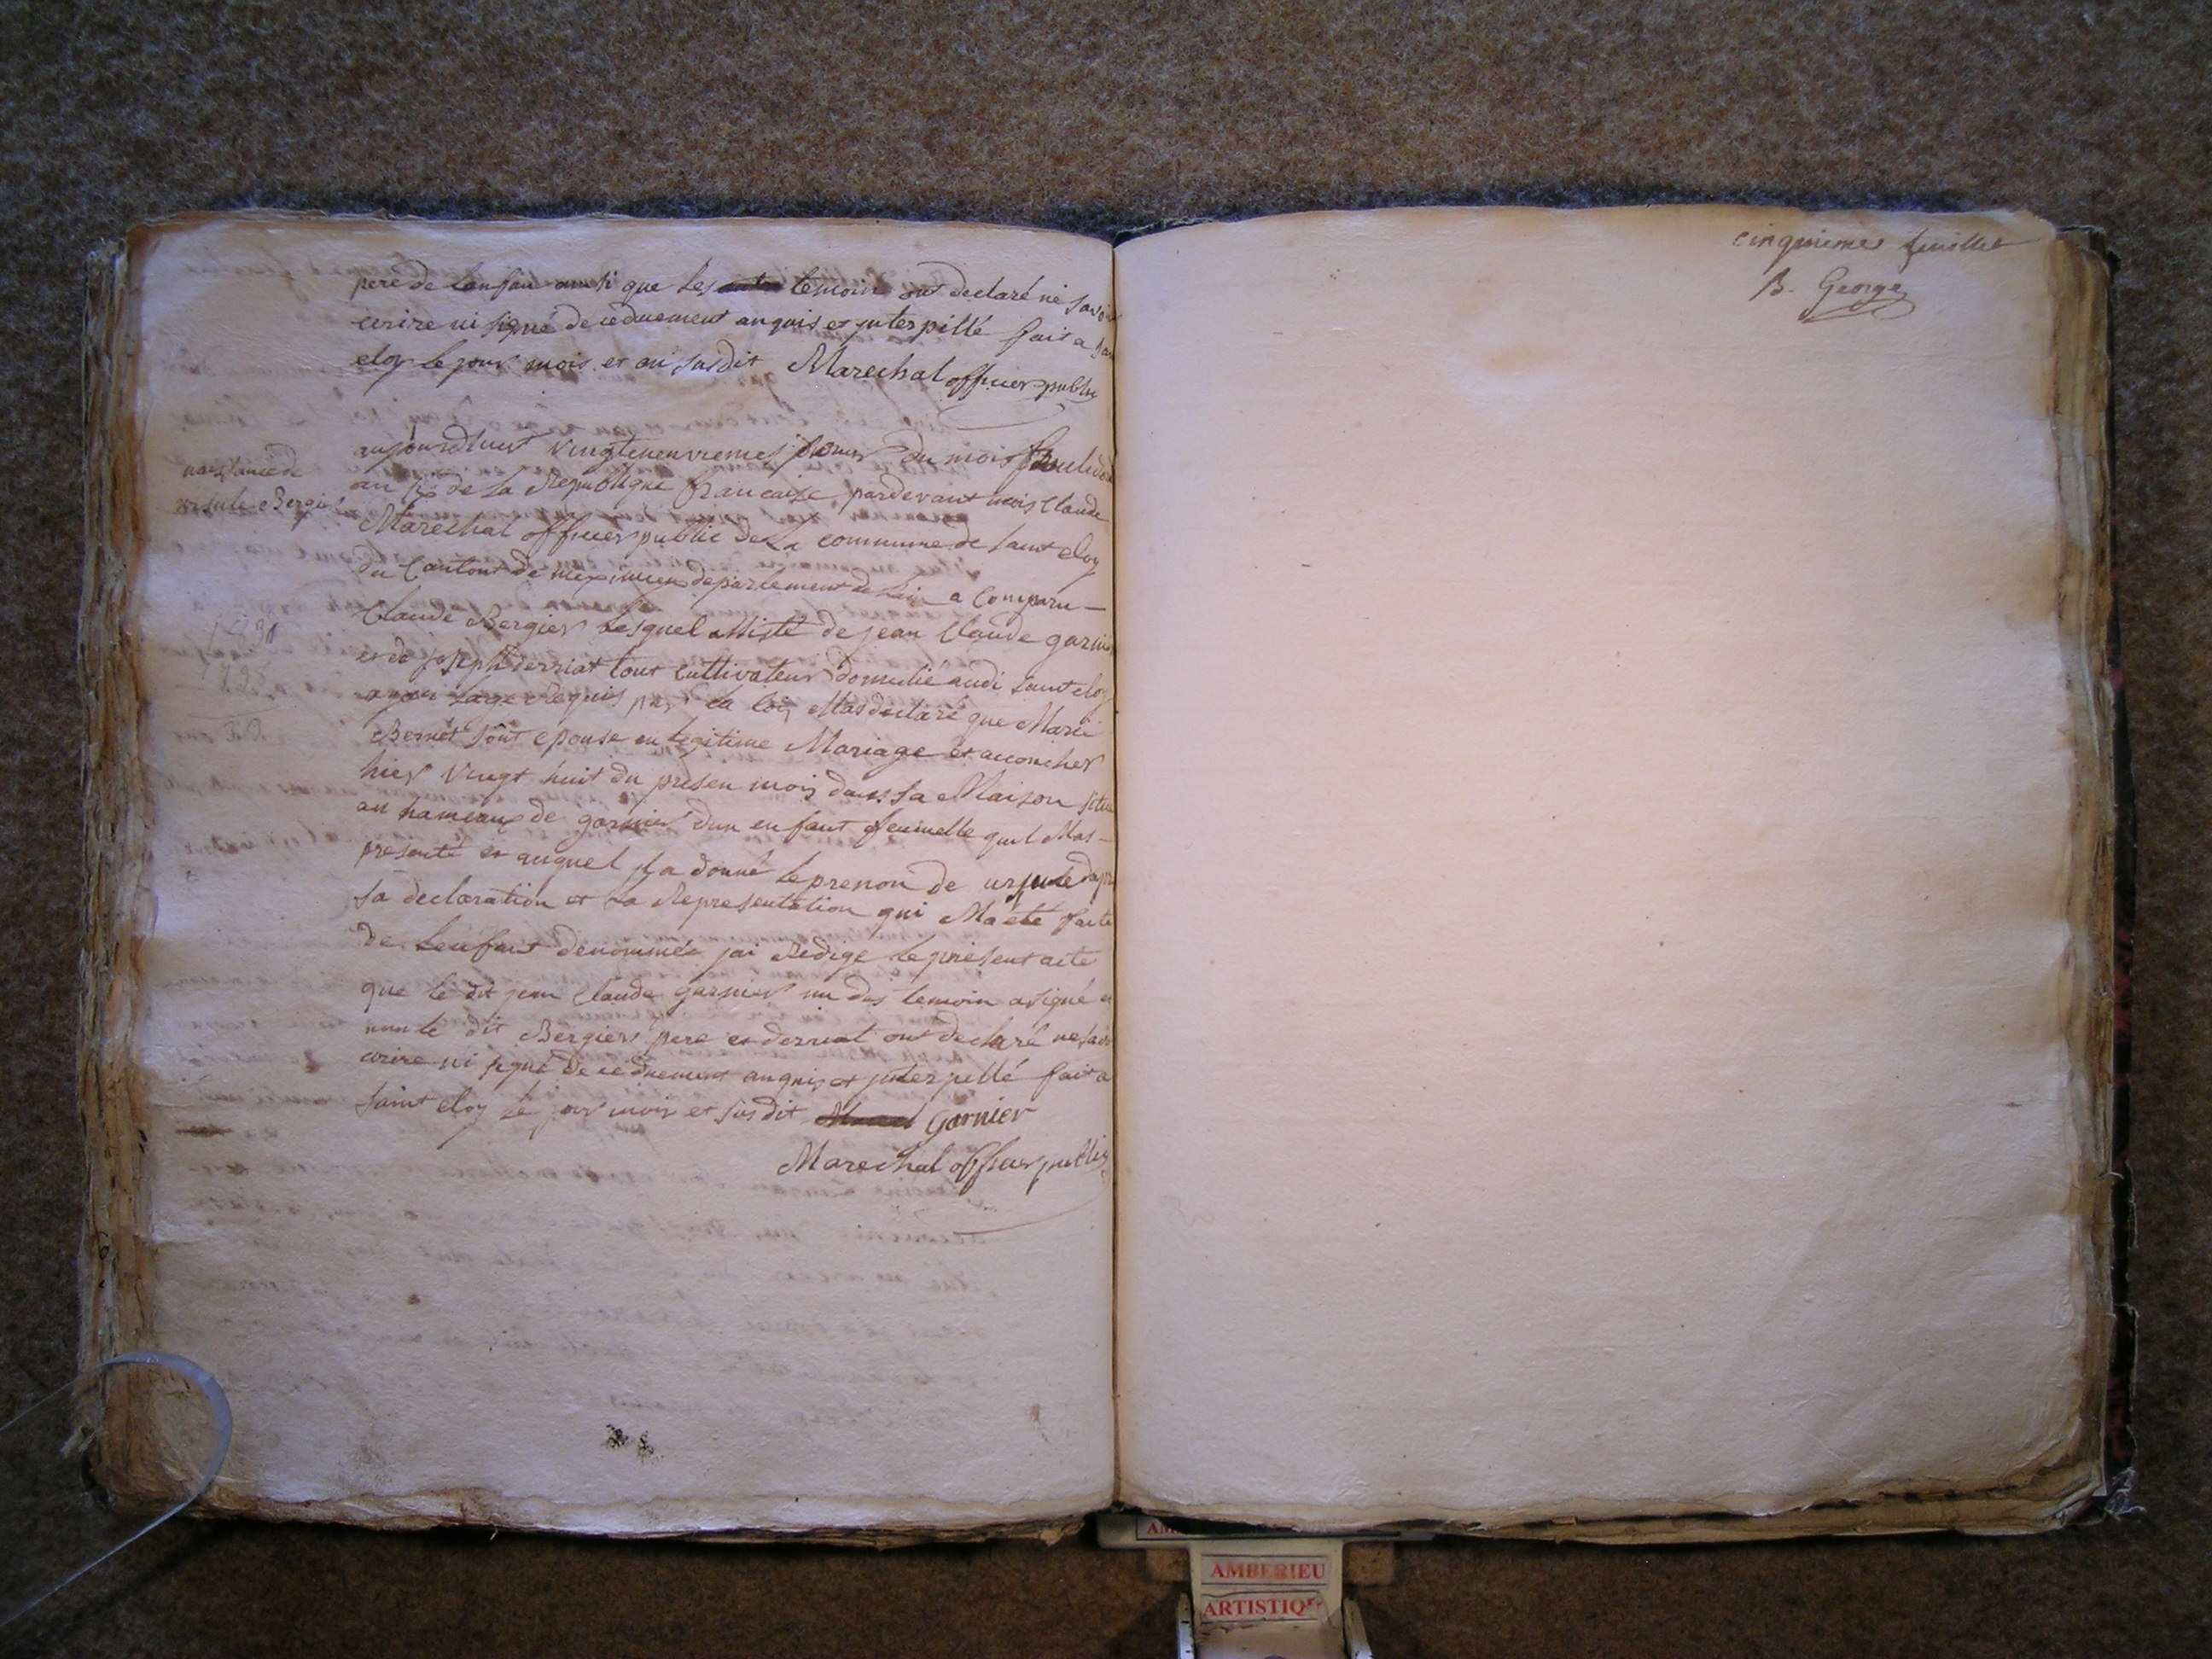 pere de lanfan ainsi que les temoin ont declaré ne savoir
ecrire ni signé de ce duement anquis et jnterpillé fait a
eloy le jour mois et an susdit Marechal officier public
naissance de
ursule Bergier
aujourdhuit vingteneuviemes jour du mois
an de la Republique francaise pardevant mois Claude
Marechal officier public de la commune de saint eloy
du Cantont de meximieux departement de lain a Comparu
Claude Bergier lesquel assisté de jean Claude garnier
et de joseph derriat tout cultivateur domicilié audi saint eloy
ayan lage Requis par la loi Mas declaré que Marie
Bernet sont epouse en legitime Mariage et accoucher
hier vingt huit du presen mois dans sa Maison situé
au hameaux de garnier dun enfant femelle quil Mas
presenté et auquel jl a donné le prenon de ursule dapr
sa declaration et la Representation qui Ma été faite
de lenfant denommée jai Redige le présent acte
que le dit jean Claude garnier un des temoin a signé et
non le dit Bergier pere et derriat ont declaré ne savoir
ecrire ni signé de ce duement anquis et jnterpellé fait a
saint eloy le jour mois et susdit Garnier
Marechal officier public
1830
cinquieme feuillet
B. George
AMBERIEU
ARTISTIQUE